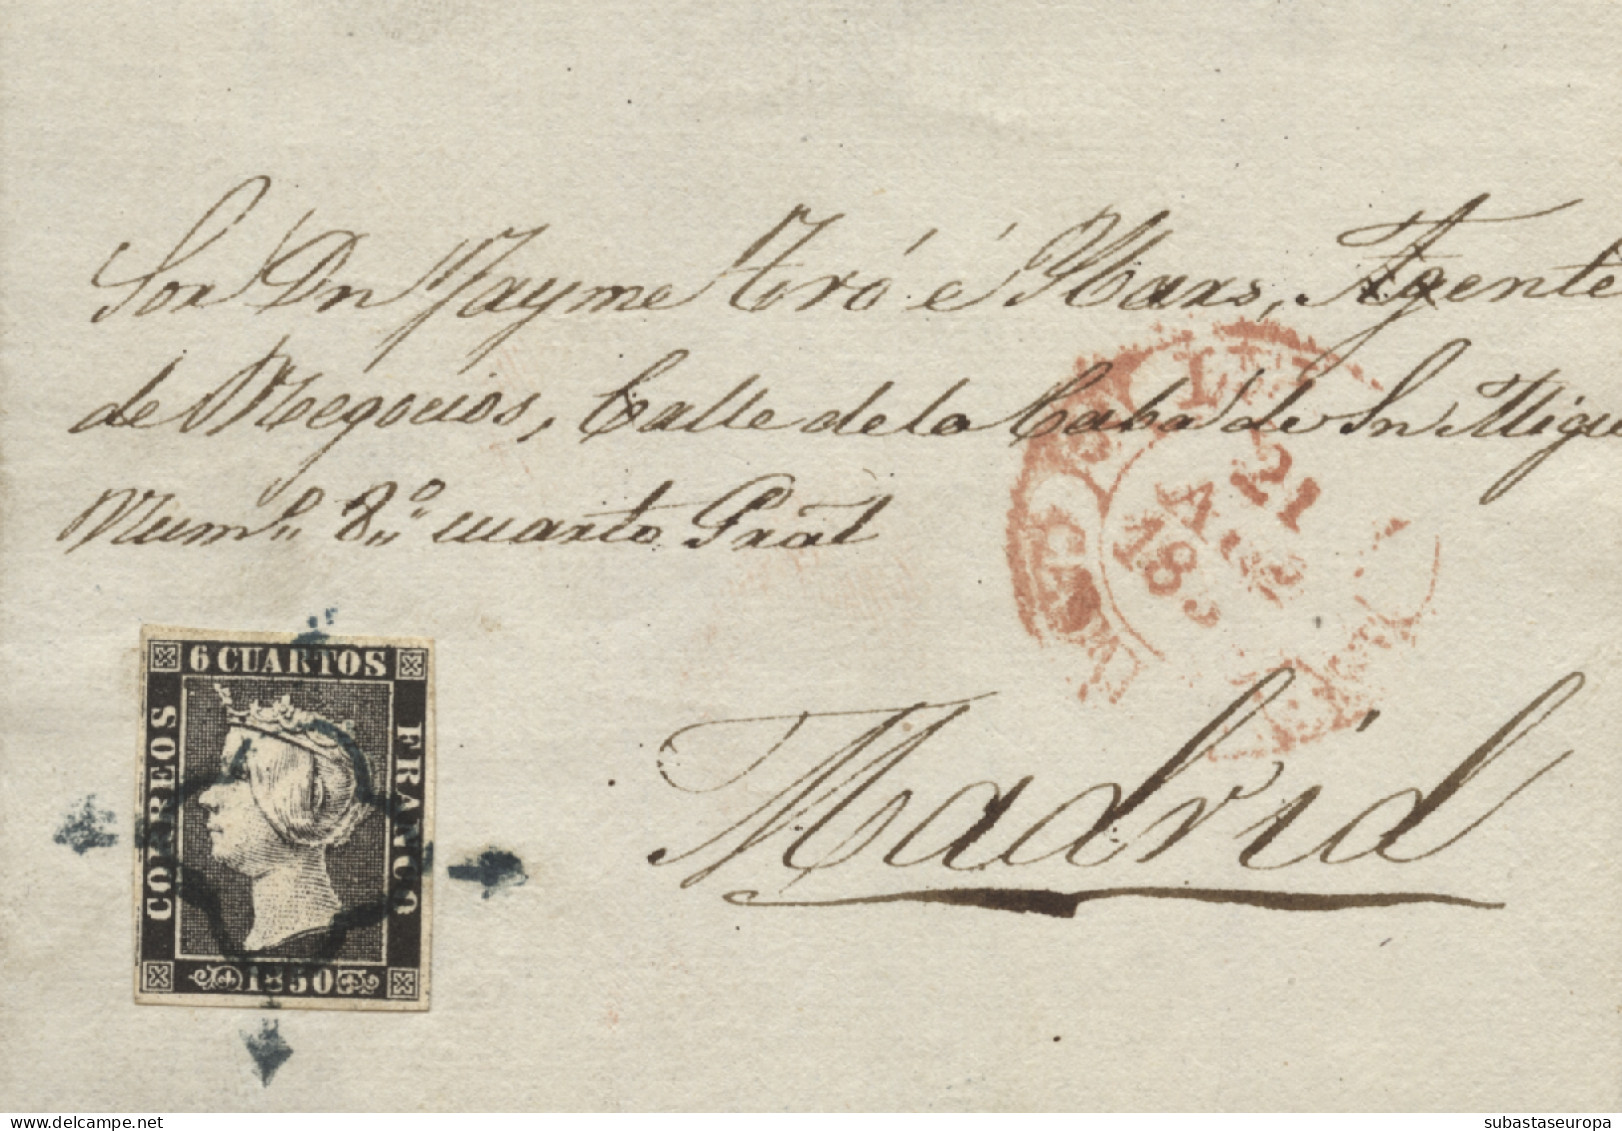 Sor Dn Jayme Tró é Mars, Agente
de Negocios, Calle de la Caba de Sn Migue
Numo 8, cuarto Pral
Madrid
6 CUARTOS
CORREOS
FRANCO
1850
CAST
21
18
www.delcampe.net
subastaseuropa